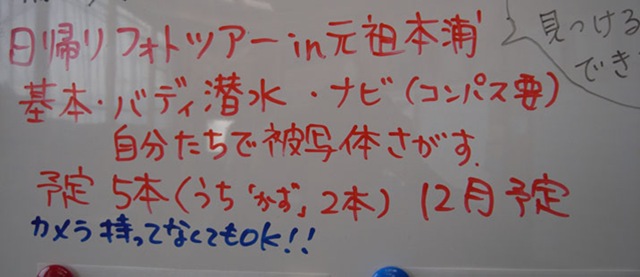 日帰りフォトツアーin元祖本浦
基本・バディ潜水・ナビ(コンパス要)
自分たちで被写体さがす.
予定 5本(うち「かず」2本) 12月予定
カメラ持ってなくてもOK!!
見つける
でき